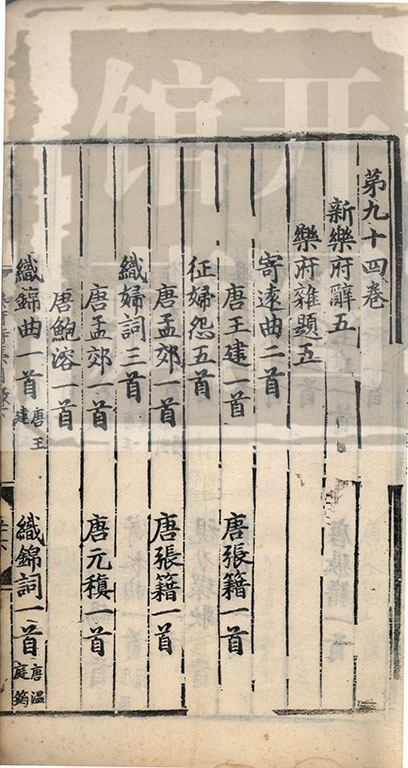 第九十四卷
新樂府辭五
樂府雜題五
寄遠曲二首
唐王建一首 唐張籍一首
征婦怨五首
唐孟郊一首 唐張籍一首
織婦詞三首
唐孟郊一首 唐元稹一首
唐鮑溶一首
織錦曲一首 唐王建 織錦詞一首 唐溫庭筠